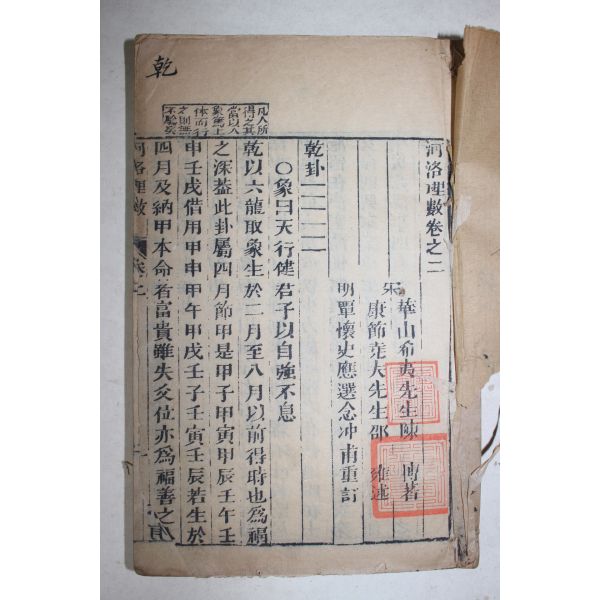 河洛理數卷之二
宋 華山希夷先生陳 摶著
康節堯夫先生邵 雍述
明 覃懷史應選念冲甫重訂
乾卦
○象曰天行健君子以自強不息
乾以六龍取象生於二月至八月以前得時也為福
之深蓋此卦屬四月節甲是甲子甲寅甲辰壬午壬
申壬戌借用甲申甲午甲戌壬子壬寅壬辰若生於
四月及納甲本命者富貴雖失爻位亦為福善之
凡人所
得之其
當以八
象篤上
体而行
之則無
不驗矣
乾
河洛理數